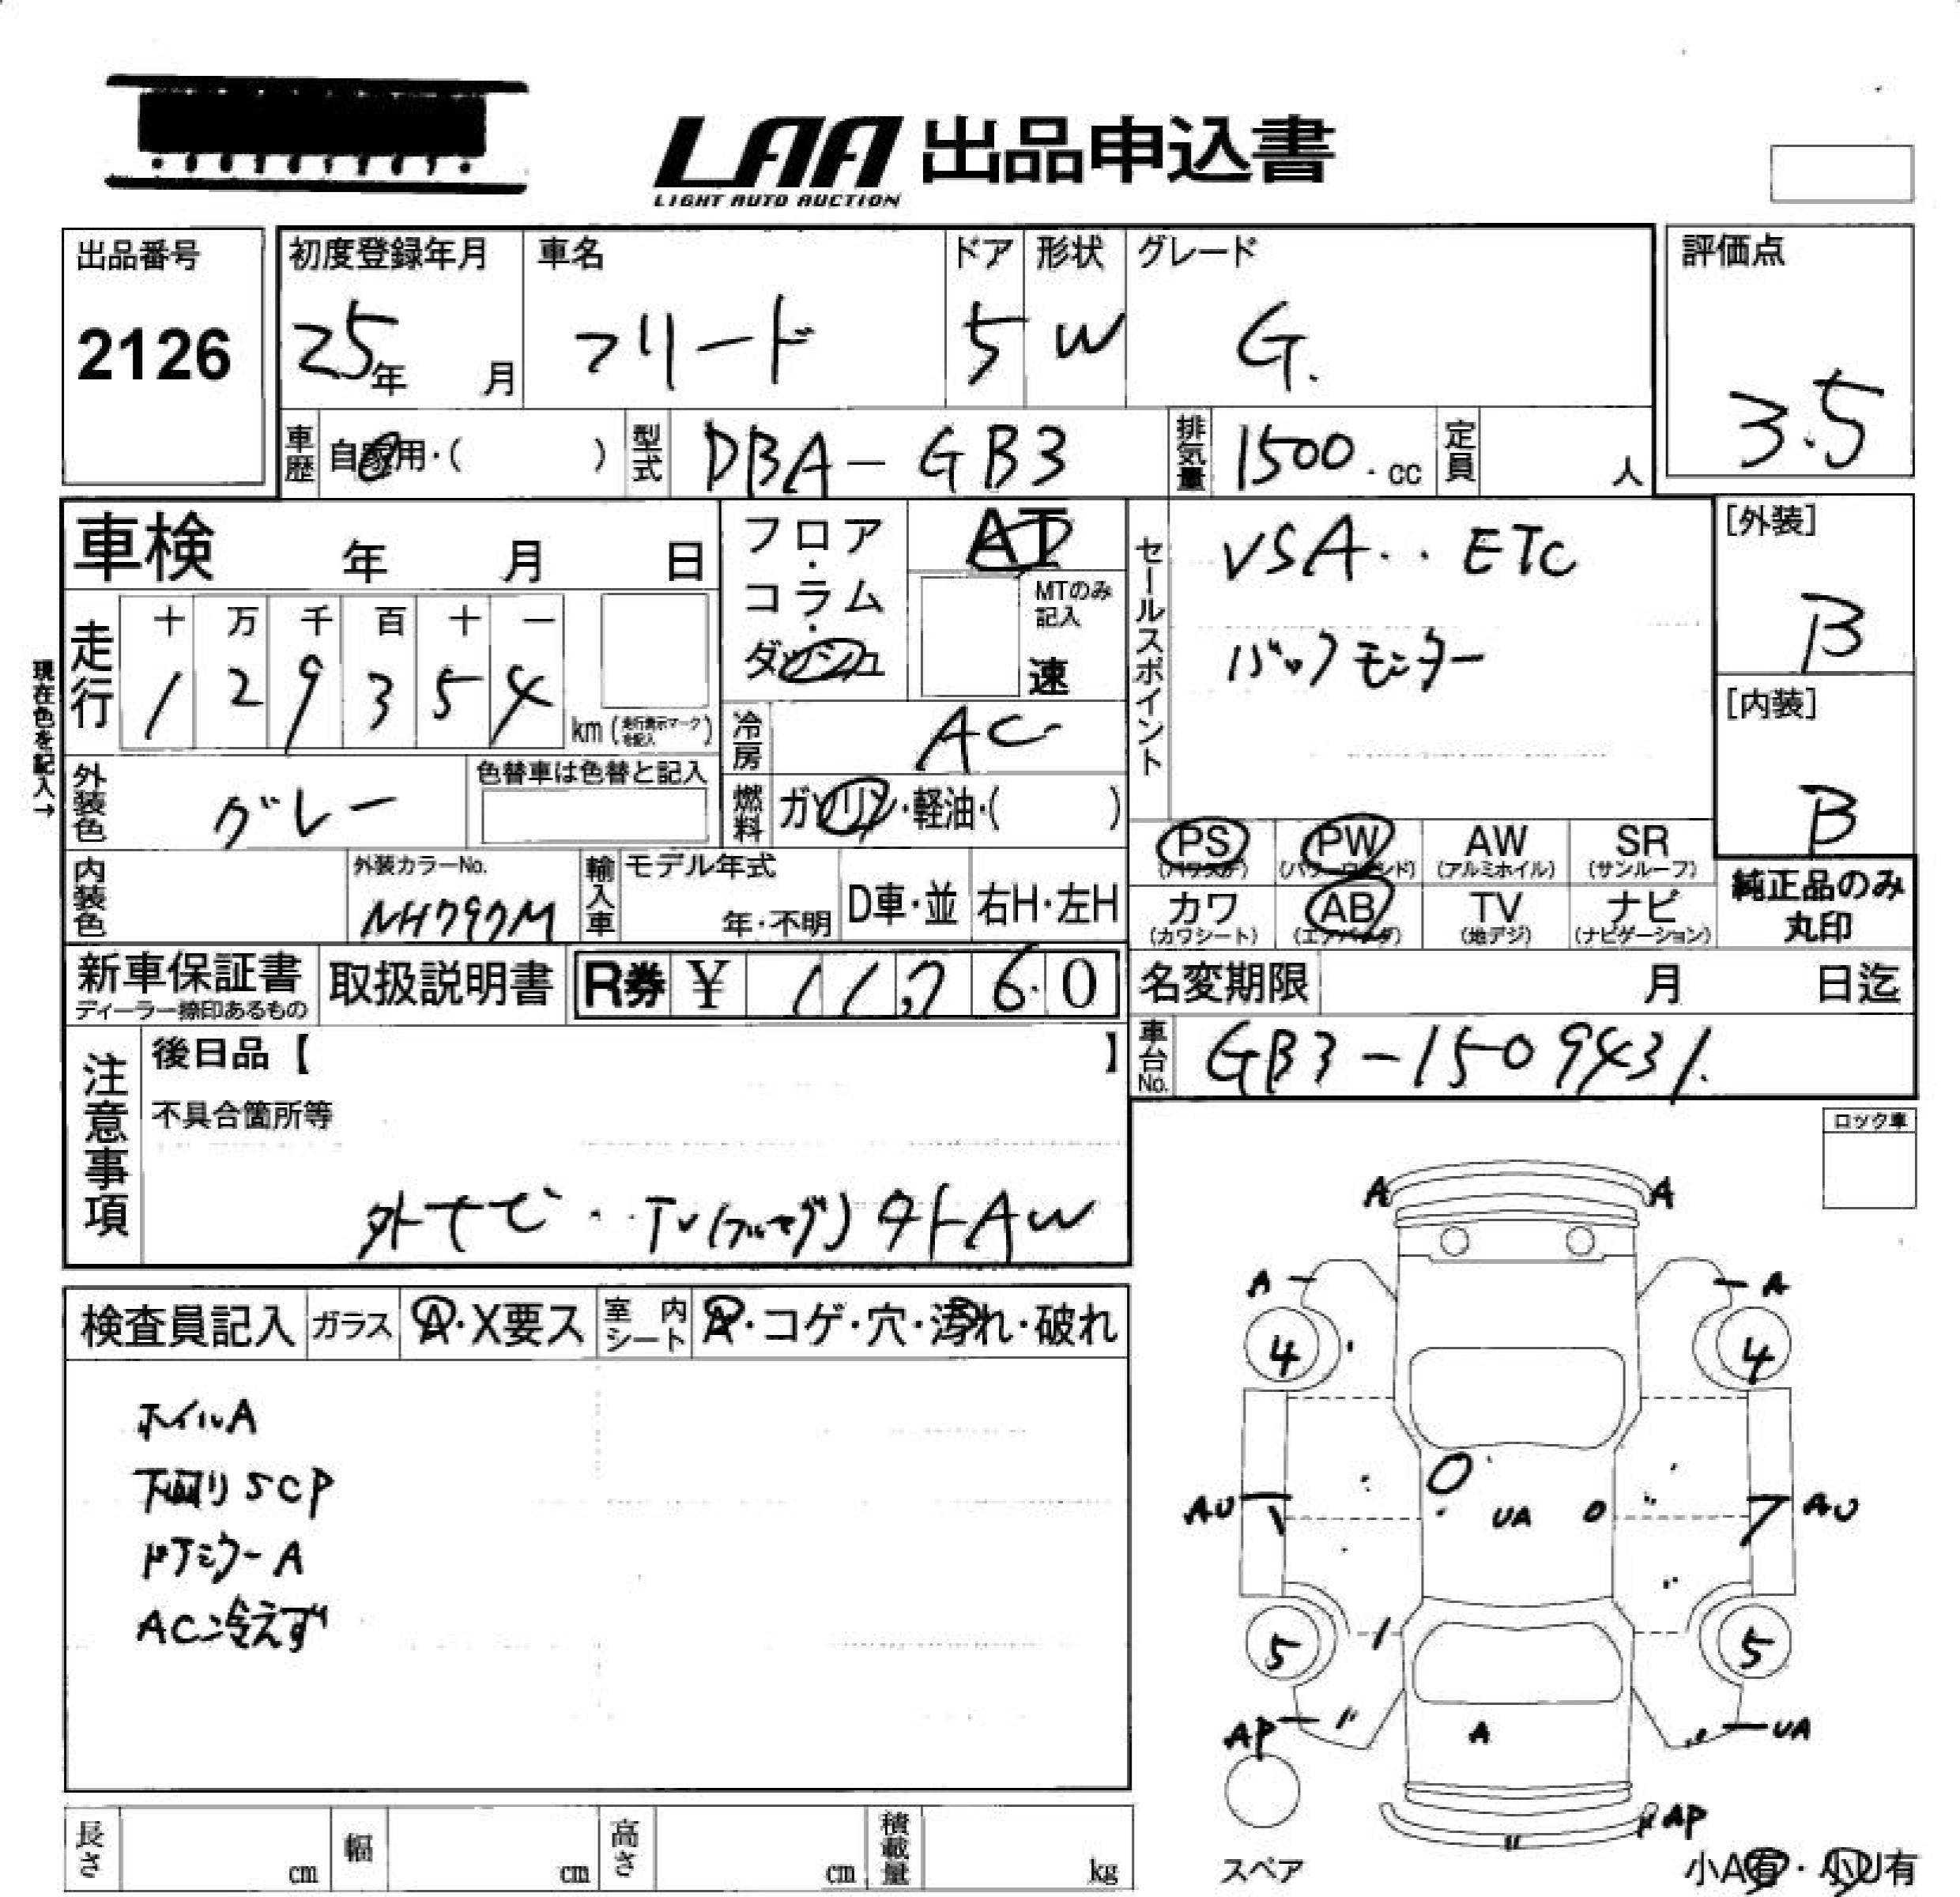 LAA 出品申込書
LIGHT AUTO AUCTION
出品番号
2126
初度登録年月
25年 月
車名
フリード
ドア
5
形状
W
グレード
G.
評価点
3.5
車歴 自家用・( )
型式 DBA-GB3
排気量 1500.cc
定員 人
車検 年 月 日
フロア・コラム・ダッシュ
AT
MTのみ記入
速
セールスポイント
VSA・・ETC
バックモニター
[外装]
B
[内装]
B
現在色を記入→
走行 十 万 千 百 十 一
1 2 9 3 5 4 km (走行表示マークを記入)
冷房 AC
燃料 ガソリン・軽油・( )
外装色 グレー
色替車は色替と記入
内装色
外装カラーNo.
NH797M
輸入車 モデル年式
年・不明
D車・並 右H・左H
PS (パワステ) PW (パワーウィンド) AW (アルミホイル) SR (サンルーフ)
カワ (カワシート) AB (エアバッグ) TV (地デジ) ナビ (ナビゲーション)
純正品のみ丸印
新車保証書
ディーラー捺印あるもの
取扱説明書
R券 ¥ 11,760
名変期限 月 日迄
車台No. GB3-1509431.
注意事項
後日品【 】
不具合箇所等
外ナビ・・TV(フルセグ) 外AW
ロック車
検査員記入 ガラス A・X要ス 室内シート A・コゲ・穴・汚れ・破れ
ホイルA
下回りSCP
ドアミラーA
AC冷えず
A A
A A
4 4
AU UA AU
5 5
AP A UA
AP
スペア
小A有・小U有
長さ cm 幅 cm 高さ cm 積載量 kg